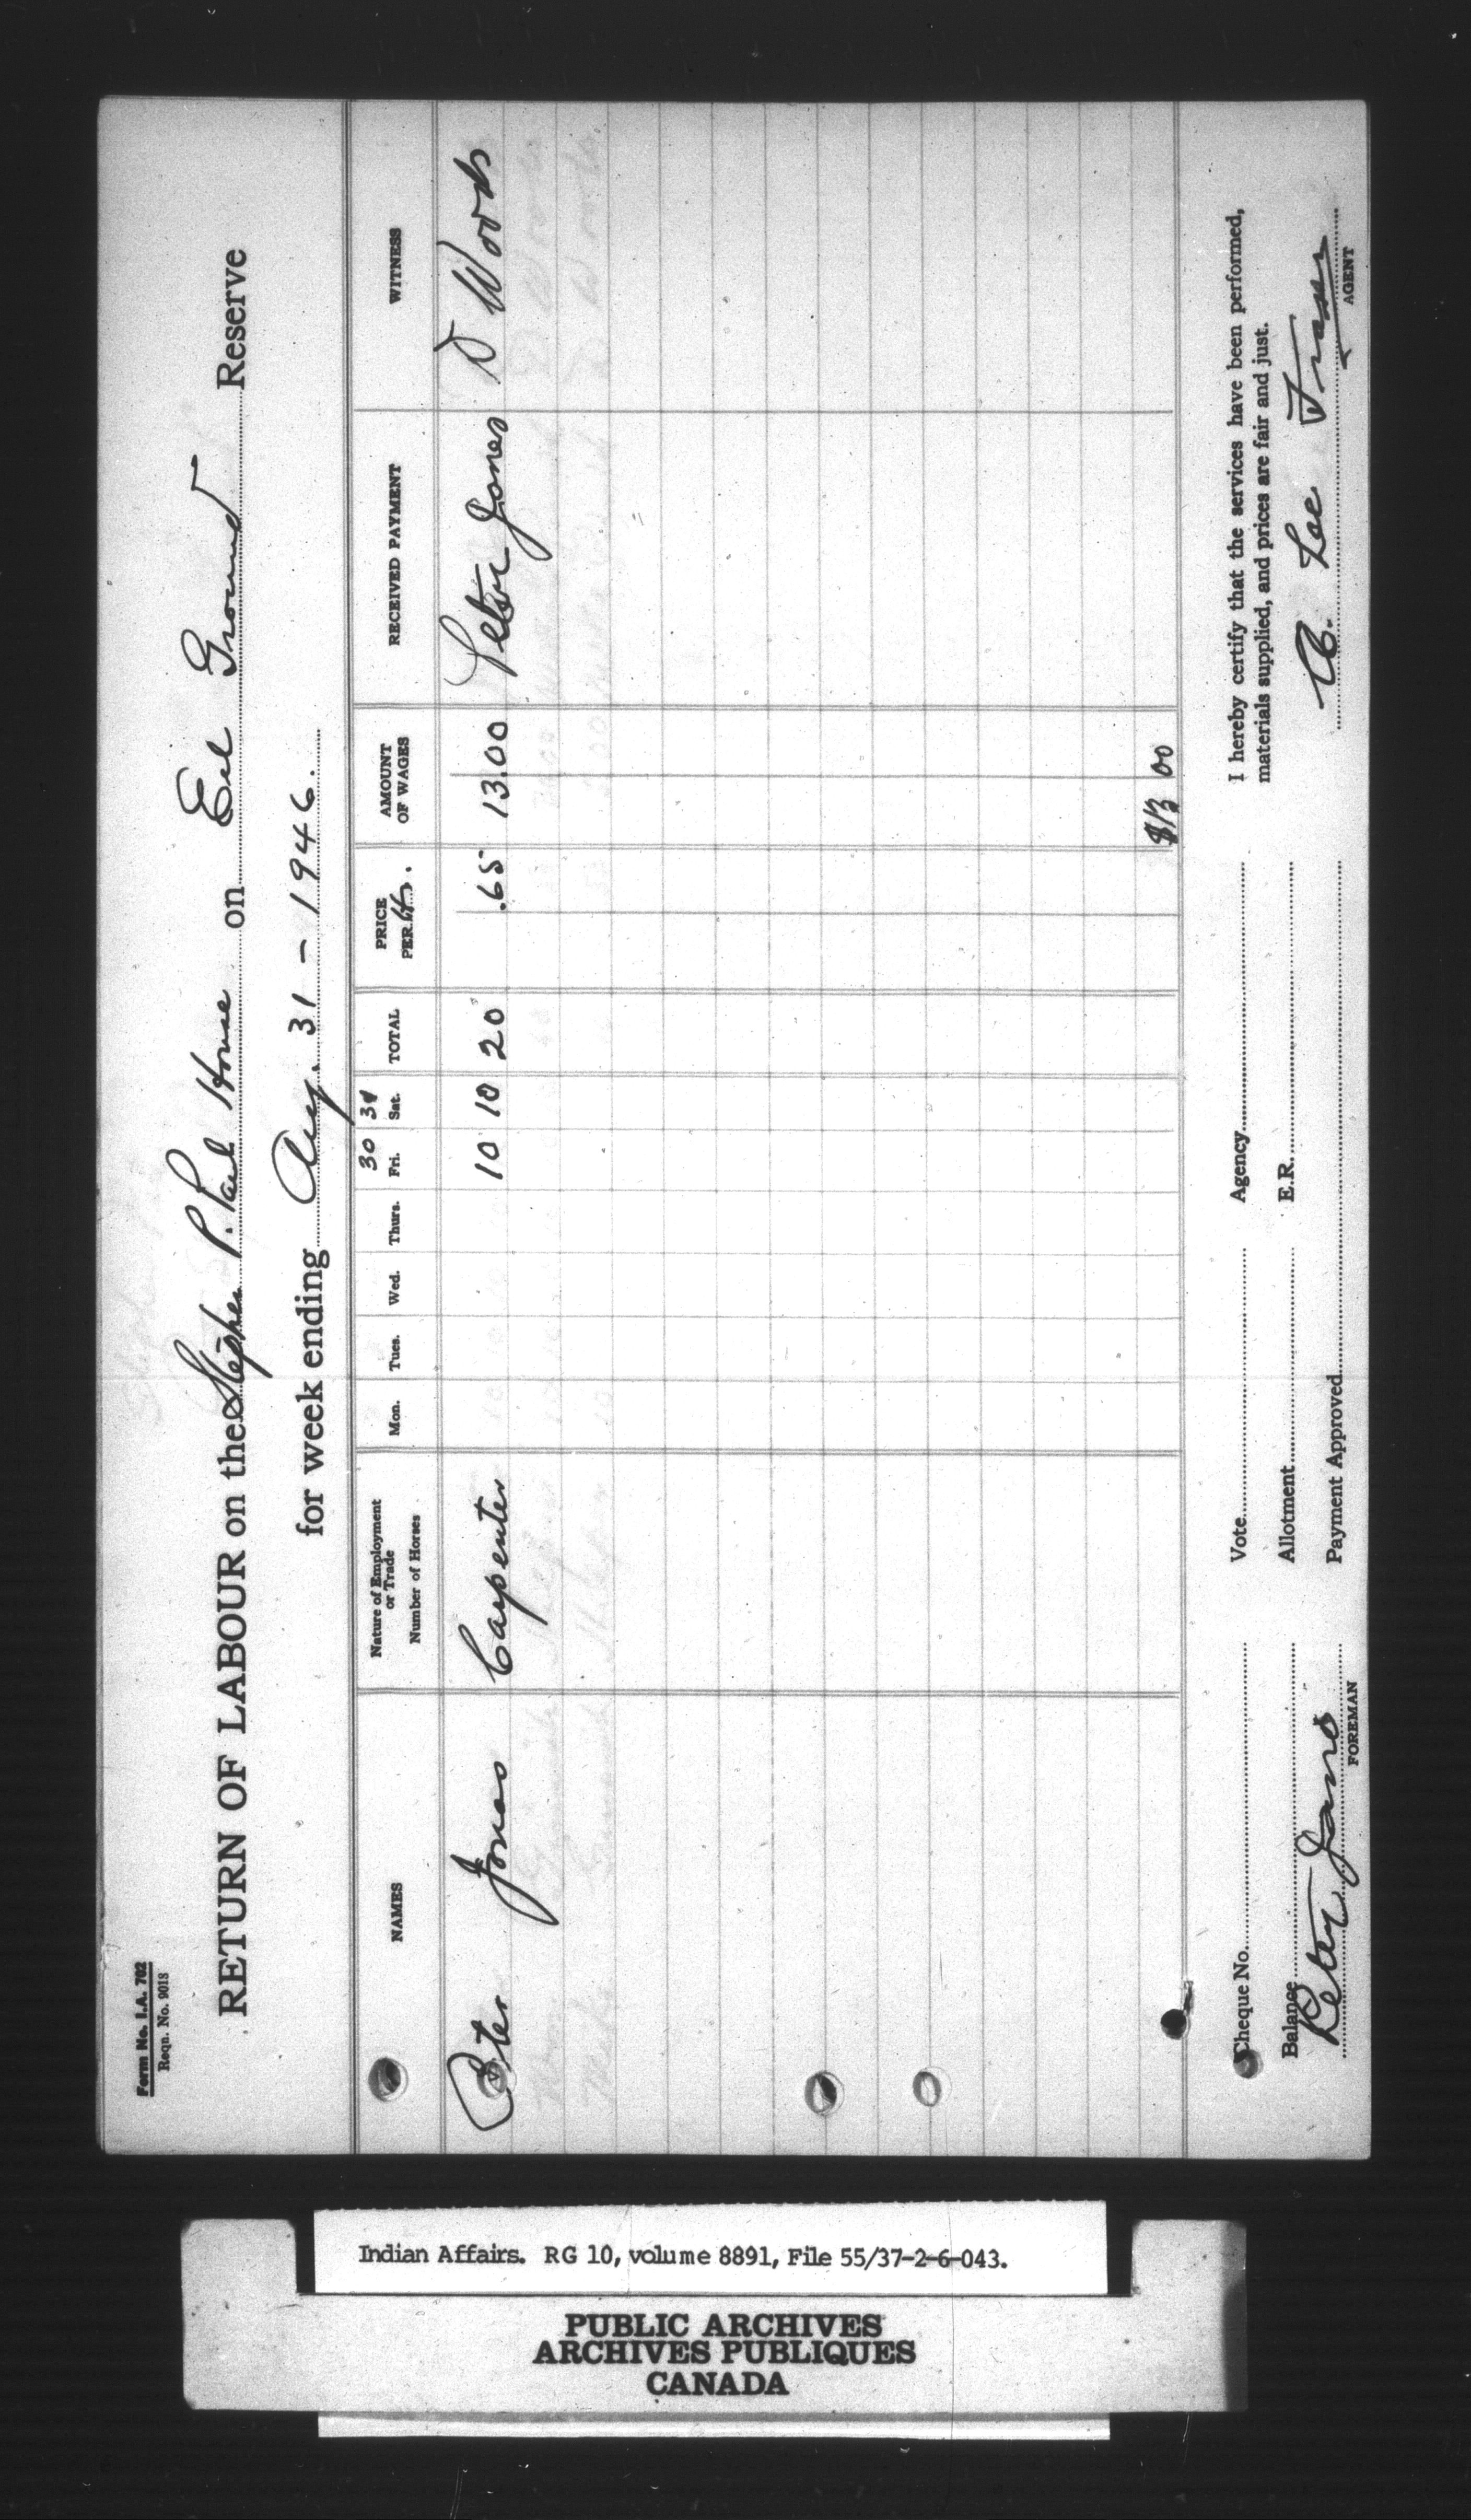 Form No. I.A. 702
Reqn. No. 9018
RETURN OF LABOUR on the Stephen P. Paul House on Eel Ground Reserve
for week ending Aug. 31 - 1946.
30 31
NAMES Nature of Employment or Trade Number of Horses Mon. Tues. Wed. Thurs. Fri. Sat. TOTAL PRICE PER Hr. AMOUNT OF WAGES RECEIVED PAYMENT WITNESS
Peter Jones Carpenter 10 10 20 .65 13.00 Peter Jones D Woods
$13 00
Cheque No. Vote Agency I hereby certify that the services have been performed,
materials supplied, and prices are fair and just.
Balance Allotment E.R.
Peter Jones Payment Approved Lee Fraser
FOREMAN AGENT
Indian Affairs. RG 10, volume 8891, File 55/37-2-6-043.
PUBLIC ARCHIVES
ARCHIVES PUBLIQUES
CANADA